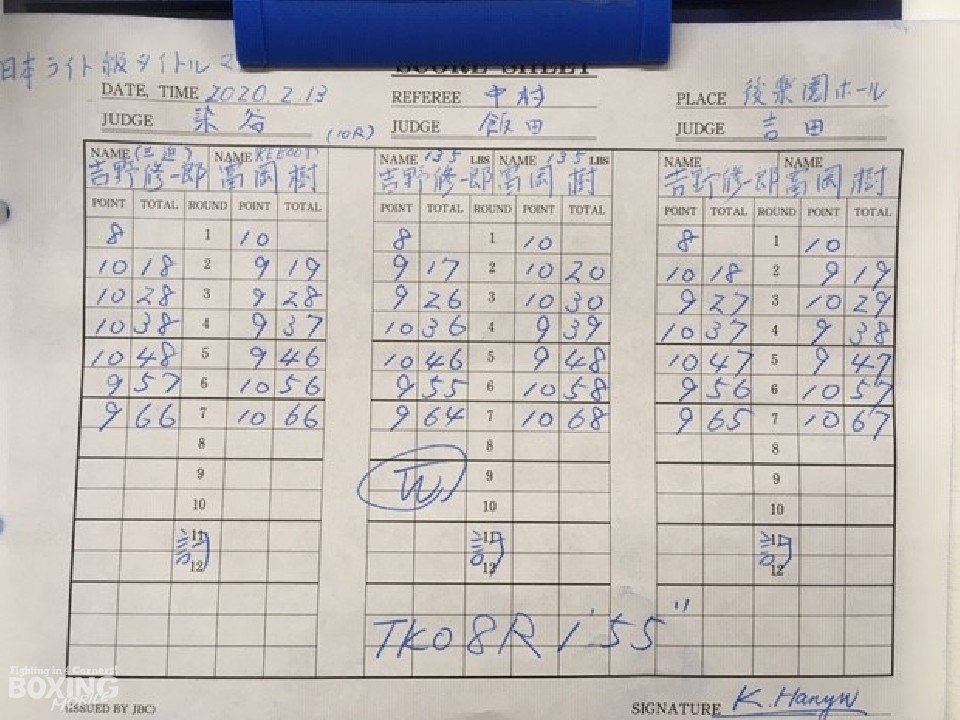 日本ライト級タイトルマ
SCORE SHEET
DATE, TIME 2020.2.13 REFEREE 中村 PLACE 後楽園ホール
JUDGE 染谷 (10R) JUDGE 飯田 JUDGE 吉田
NAME (三迫) NAME REBOOT NAME 135 LBS NAME 135 LBS NAME NAME
吉野修一郎 富岡樹 吉野修一郎 富岡樹 吉野修一郎 富岡樹
POINT TOTAL ROUND POINT TOTAL POINT TOTAL ROUND POINT TOTAL POINT TOTAL ROUND POINT TOTAL
8 1 10 8 1 10 8 1 10
10 18 2 9 19 9 17 2 10 20 10 18 2 9 19
10 28 3 9 28 9 26 3 10 30 9 27 3 10 29
10 38 4 9 37 10 36 4 9 39 10 37 4 9 38
10 48 5 9 46 10 46 5 9 48 10 47 5 9 47
9 57 6 10 56 9 55 6 10 58 9 56 6 10 57
9 66 7 10 66 9 64 7 10 68 9 65 7 10 67
8 8 8
9 W 9 9
10 10 10
11 11 11
12 12 12
TKO 8R 1'55"
Fighting in 4 Corners!
BOXING
MOBILE
(ISSUED BY JBC) SIGNATURE